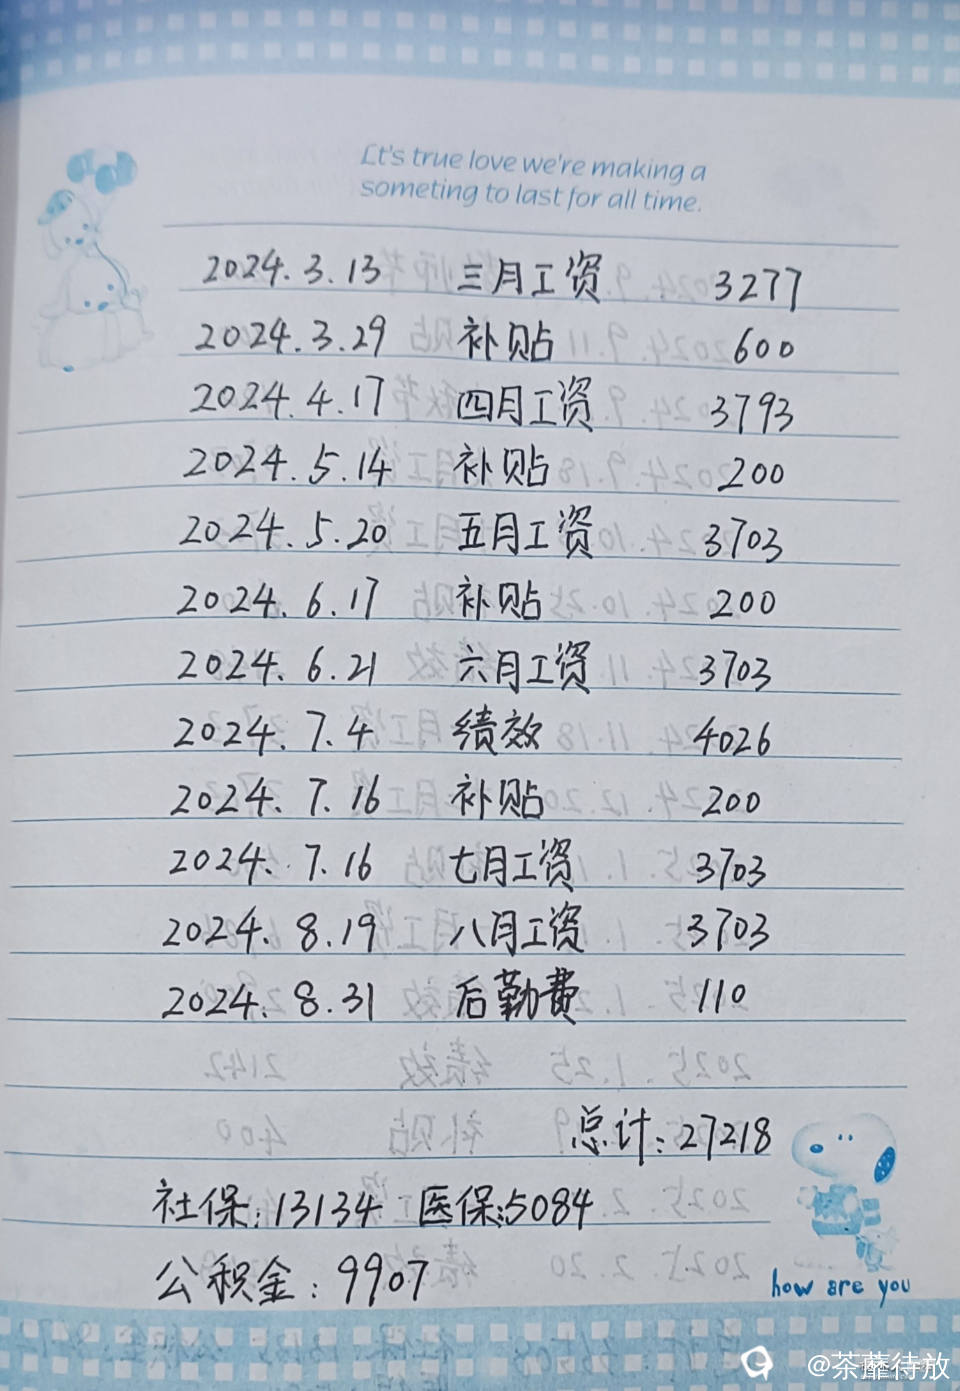 It's true love we're making a
someting to last for all time.
2024.3.13 三月工资 3277
2024.3.29 补贴 600
2024.4.17 四月工资 3793
2024.5.14 补贴 200
2024.5.20 五月工资 3703
2024.6.17 补贴 200
2024.6.21 六月工资 3703
2024.7.4 绩效 4026
2024.7.16 补贴 200
2024.7.16 七月工资 3703
2024.8.19 八月工资 3703
2024.8.31 后勤费 110
总计:27218
社保:13134 医保:5084
公积金:9907
how are you
@荼蘼待放